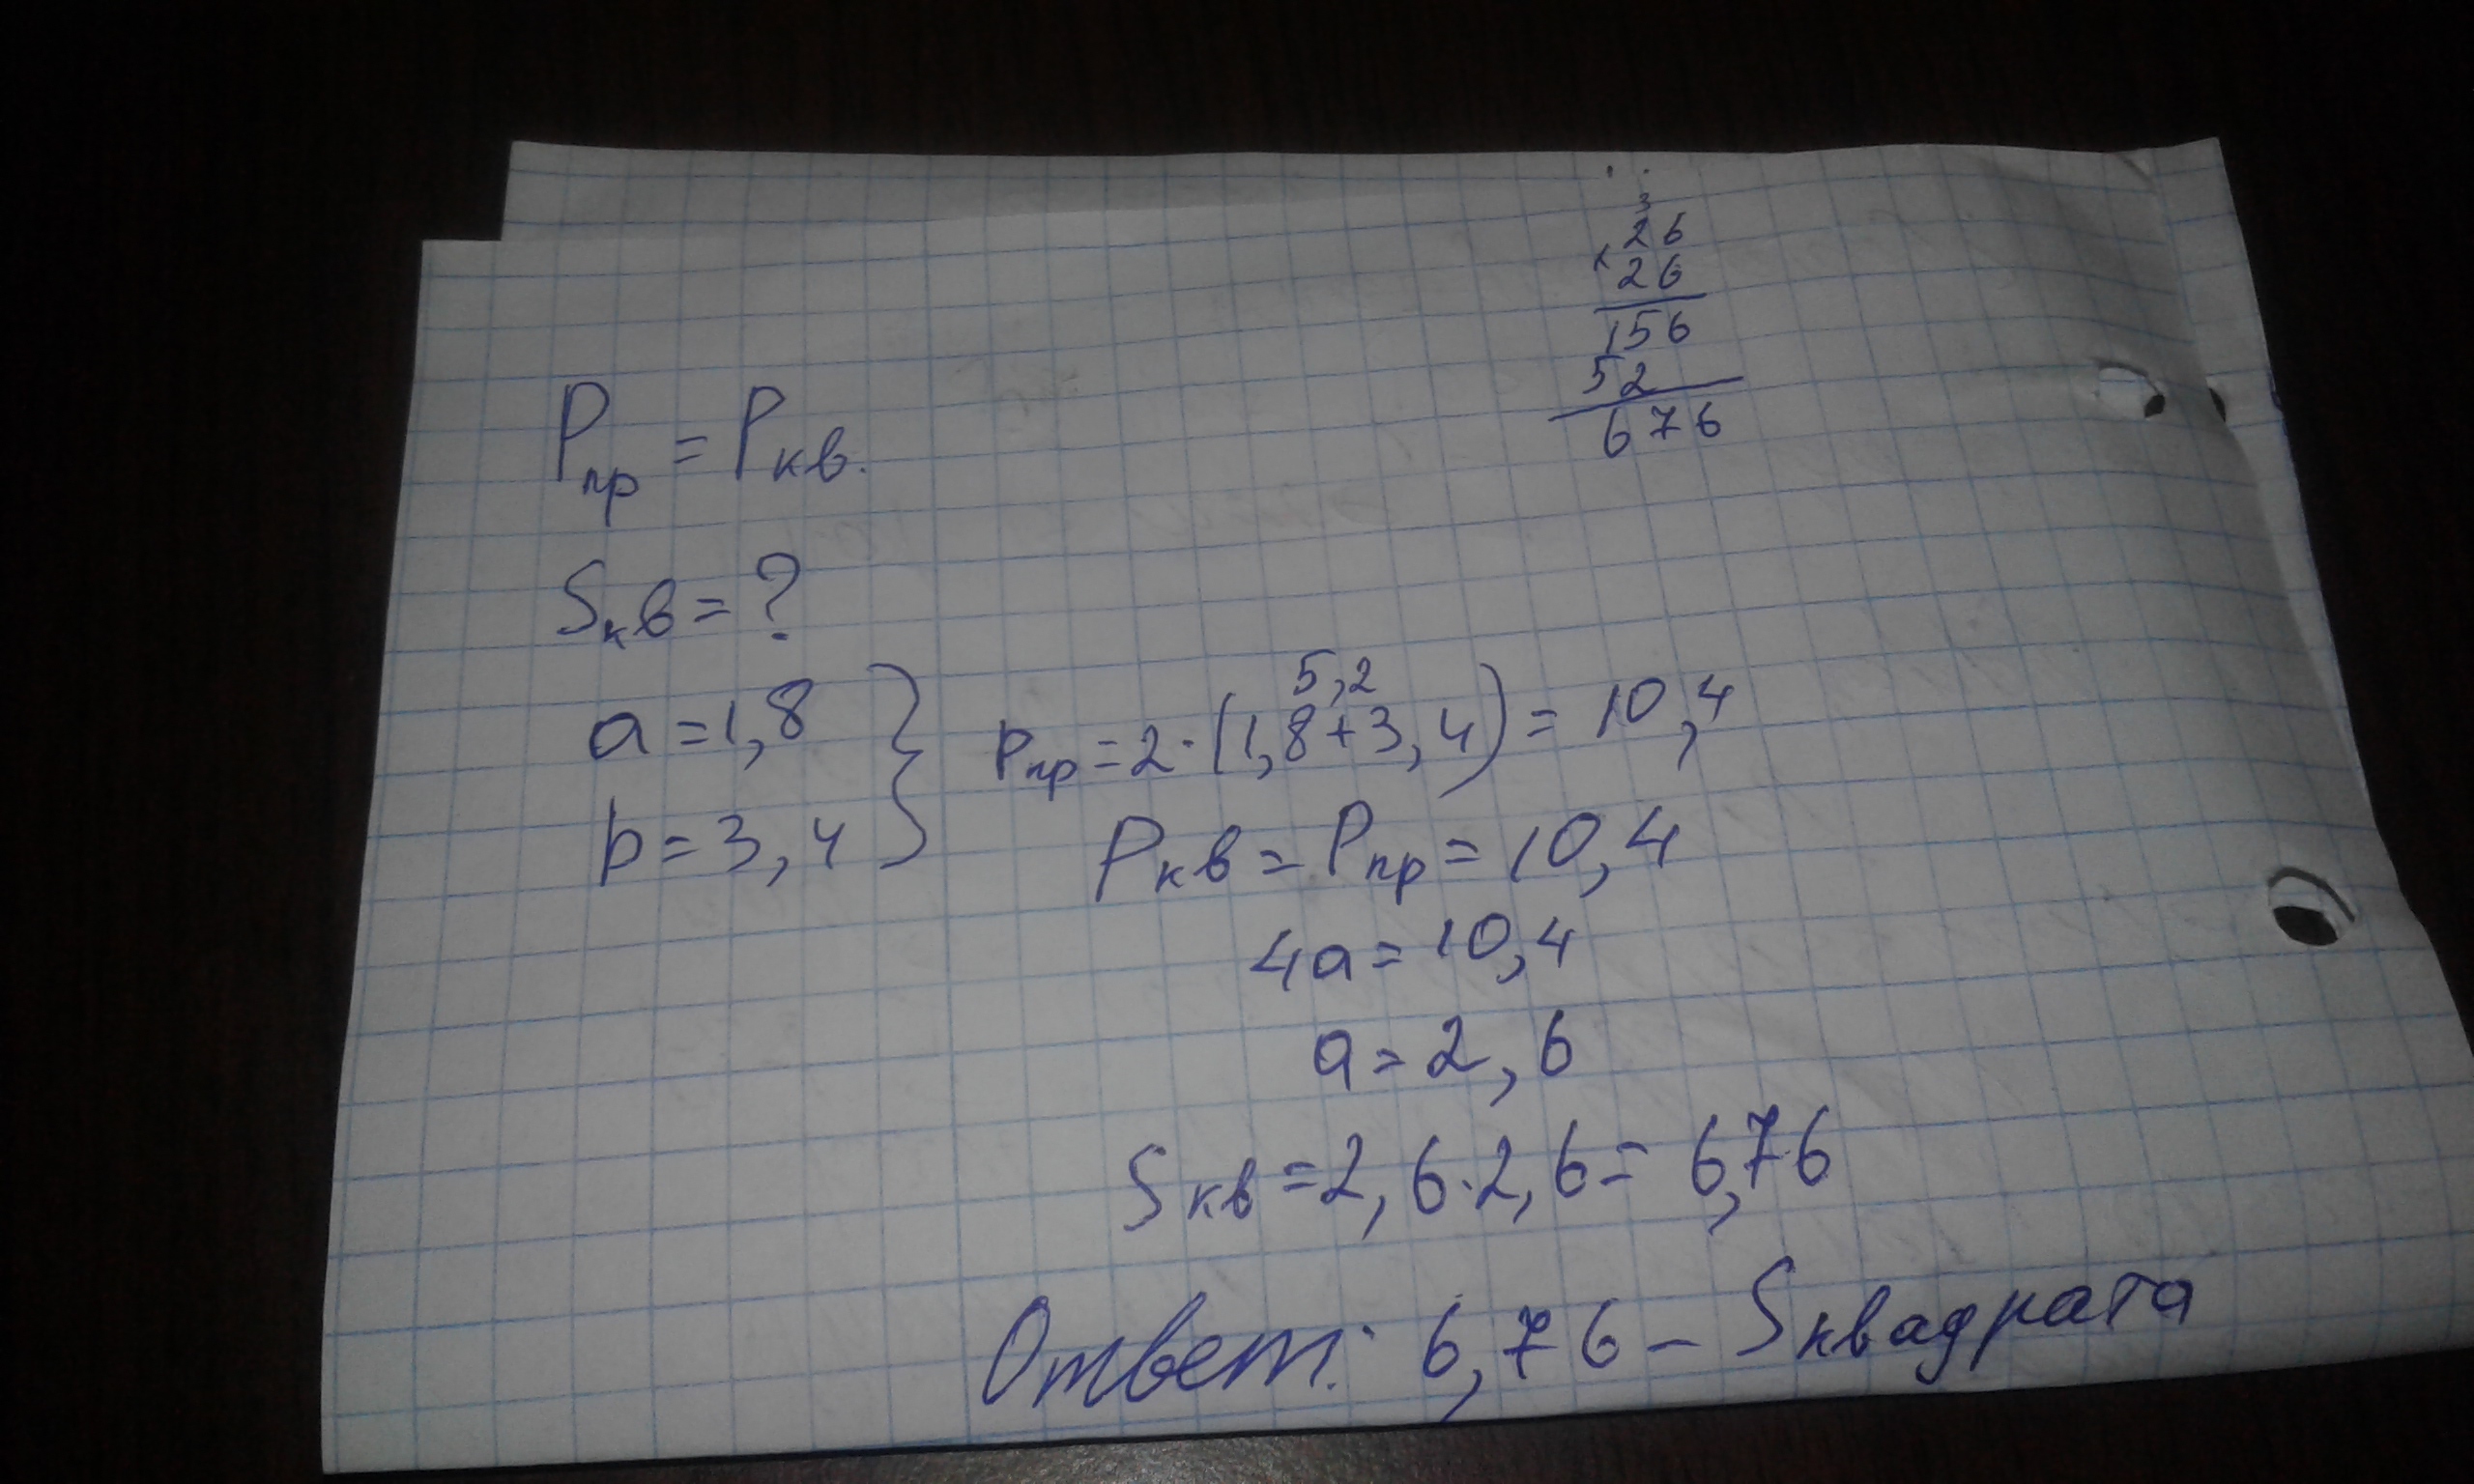 3
26
×26
156
52
676
Pпр = Pкв.
Sкв = ?
a = 1,8
b = 3,4
5,2
Pпр = 2·(1,8+3,4) = 10,4
Pкв = Pпр = 10,4
4a = 10,4
a = 2,6
Sкв = 2,6·2,6 = 6,76
Ответ: 6,76 – Sквадрата